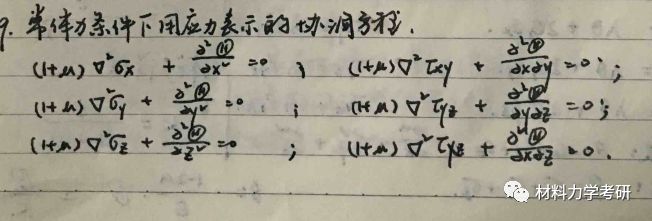 9. 常体力条件下用应力表示的协调方程.
(1+μ)∇²σx + ∂²Ⓗ/∂x² = 0 ; (1+μ)∇²τxy + ∂²Ⓗ/∂x∂y = 0 ;
(1+μ)∇²σy + ∂²Ⓗ/∂y² = 0 ; (1+μ)∇²τyz + ∂²Ⓗ/∂y∂z = 0 ;
(1+μ)∇²σz + ∂²Ⓗ/∂z² = 0 ; (1+μ)∇²τyz + ∂²Ⓗ/∂x∂z = 0 .
材料力学考研